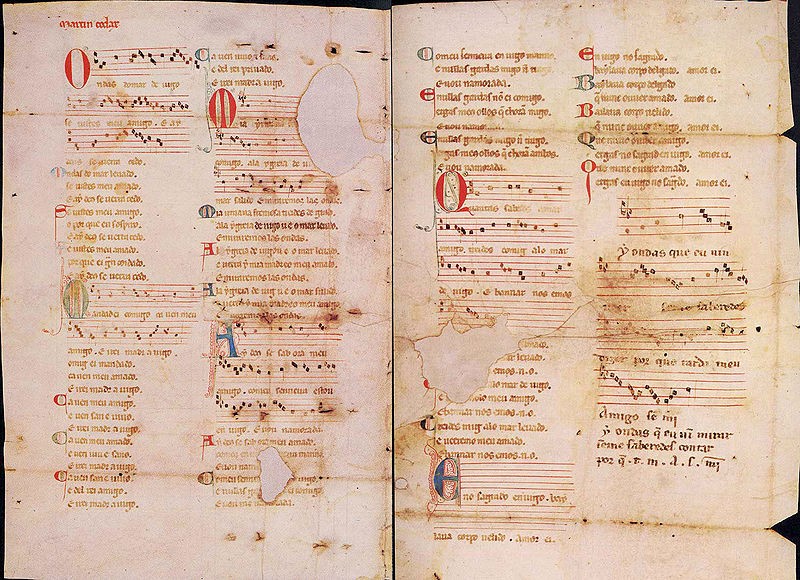 Martin codax
Ondas do mar de uigo
se uistes meu amigo. E ay
deus se uerra cedo.
Ondas do mar leuado
se uistes meu amado.
E ay deus se uerra cedo.
Se uistes meu amigo.
o por que eu sospiro.
E ay deus se uerra cedo
Se uistes meu amado.
por que ei gran coidado.
E ay deus se uerra cedo.
Mandad ei comigo ca uen meu
amigo. E irei madr a uigo.
comig ei mandado.
ca uen meu amado.
E irei madr a uigo.
Ca uen meu amigo.
e uen san e uiuo.
E irei madr a uigo.
Ca uen meu amado.
e uen uiu e sano.
E irei madr a uigo.
Ca uen san e uiuo.
e del rei amigo.
E irei madr a uigo.
Ca uen uiu e sano.
e del rei priuado.
E irei madr a uigo.
Mia yrmana
comigo. ala ygreia de ui
mar salido. E miraremos las ondas.
Mia irmana fremosa treides de grado.
ala ygreia de uigo u e o mar leuado.
E miraremos las ondas.
Ala ygreia de uigo u e o mar leuado.
e uerra y mia madre o meu amado.
E miraremos las ondas.
Ala ygreia de uig u e o mar salido.
e uerra y mia madre o meu amigo.
E miraremos las ondas.
Ay deus se sab ora meu
amigo. com eu senneira estou
en uigo. E uou namorada.
Ay deus se sab ora meu amado.
com eu en uigo senneira manno.
E uou namorada
Com eu senneira
e nullas gardas comigo.
E uou namorada.
Com eu senneira en uigo manno.
e nullas gardas migo
E uou namorada.
E nullas gardas non ei comigo.
ergas meus ollos que choran migo.
E uou
E nullas gardas migo
ergas meus ollos que choran ambos.
E uou namorada.
Quantas sabedes amar
amigo treides comig alo mar
de uigo. E bannar nos emos
amado.
mar leuado.
emos. n. o.
alo mar de uigo.
e ueeremo lo meu amigo.
E bannar nos emos. n. o.
Treides mig alo mar leuado.
e ueeremo meu amado.
E bannar nos emos. n. o.
Eno sagrado en uigo. bay
laua corpo uelido. Amor ei.
En uigo no sagrado.
baylaua corpo delgado. amor ei.
Baylaua corpo delgado
que nunc ouuer amado. amor ei.
Bailaua corpo uelido.
que nunc ouuer amigo. amor ei.
Que nunc ouuer amigo.
ergas no sagrad en uigo. amor ei.
Que nunc ouuer amado.
ergas en uigo no sagrado. amor ei.
Ay ondas que eu uin
ueer se me saberedes
dizer por que tarda meu
Amigo sen mi
Ay ondas que eu uin mirar
se me saberedes contar
por que. t. m. a. s. mi